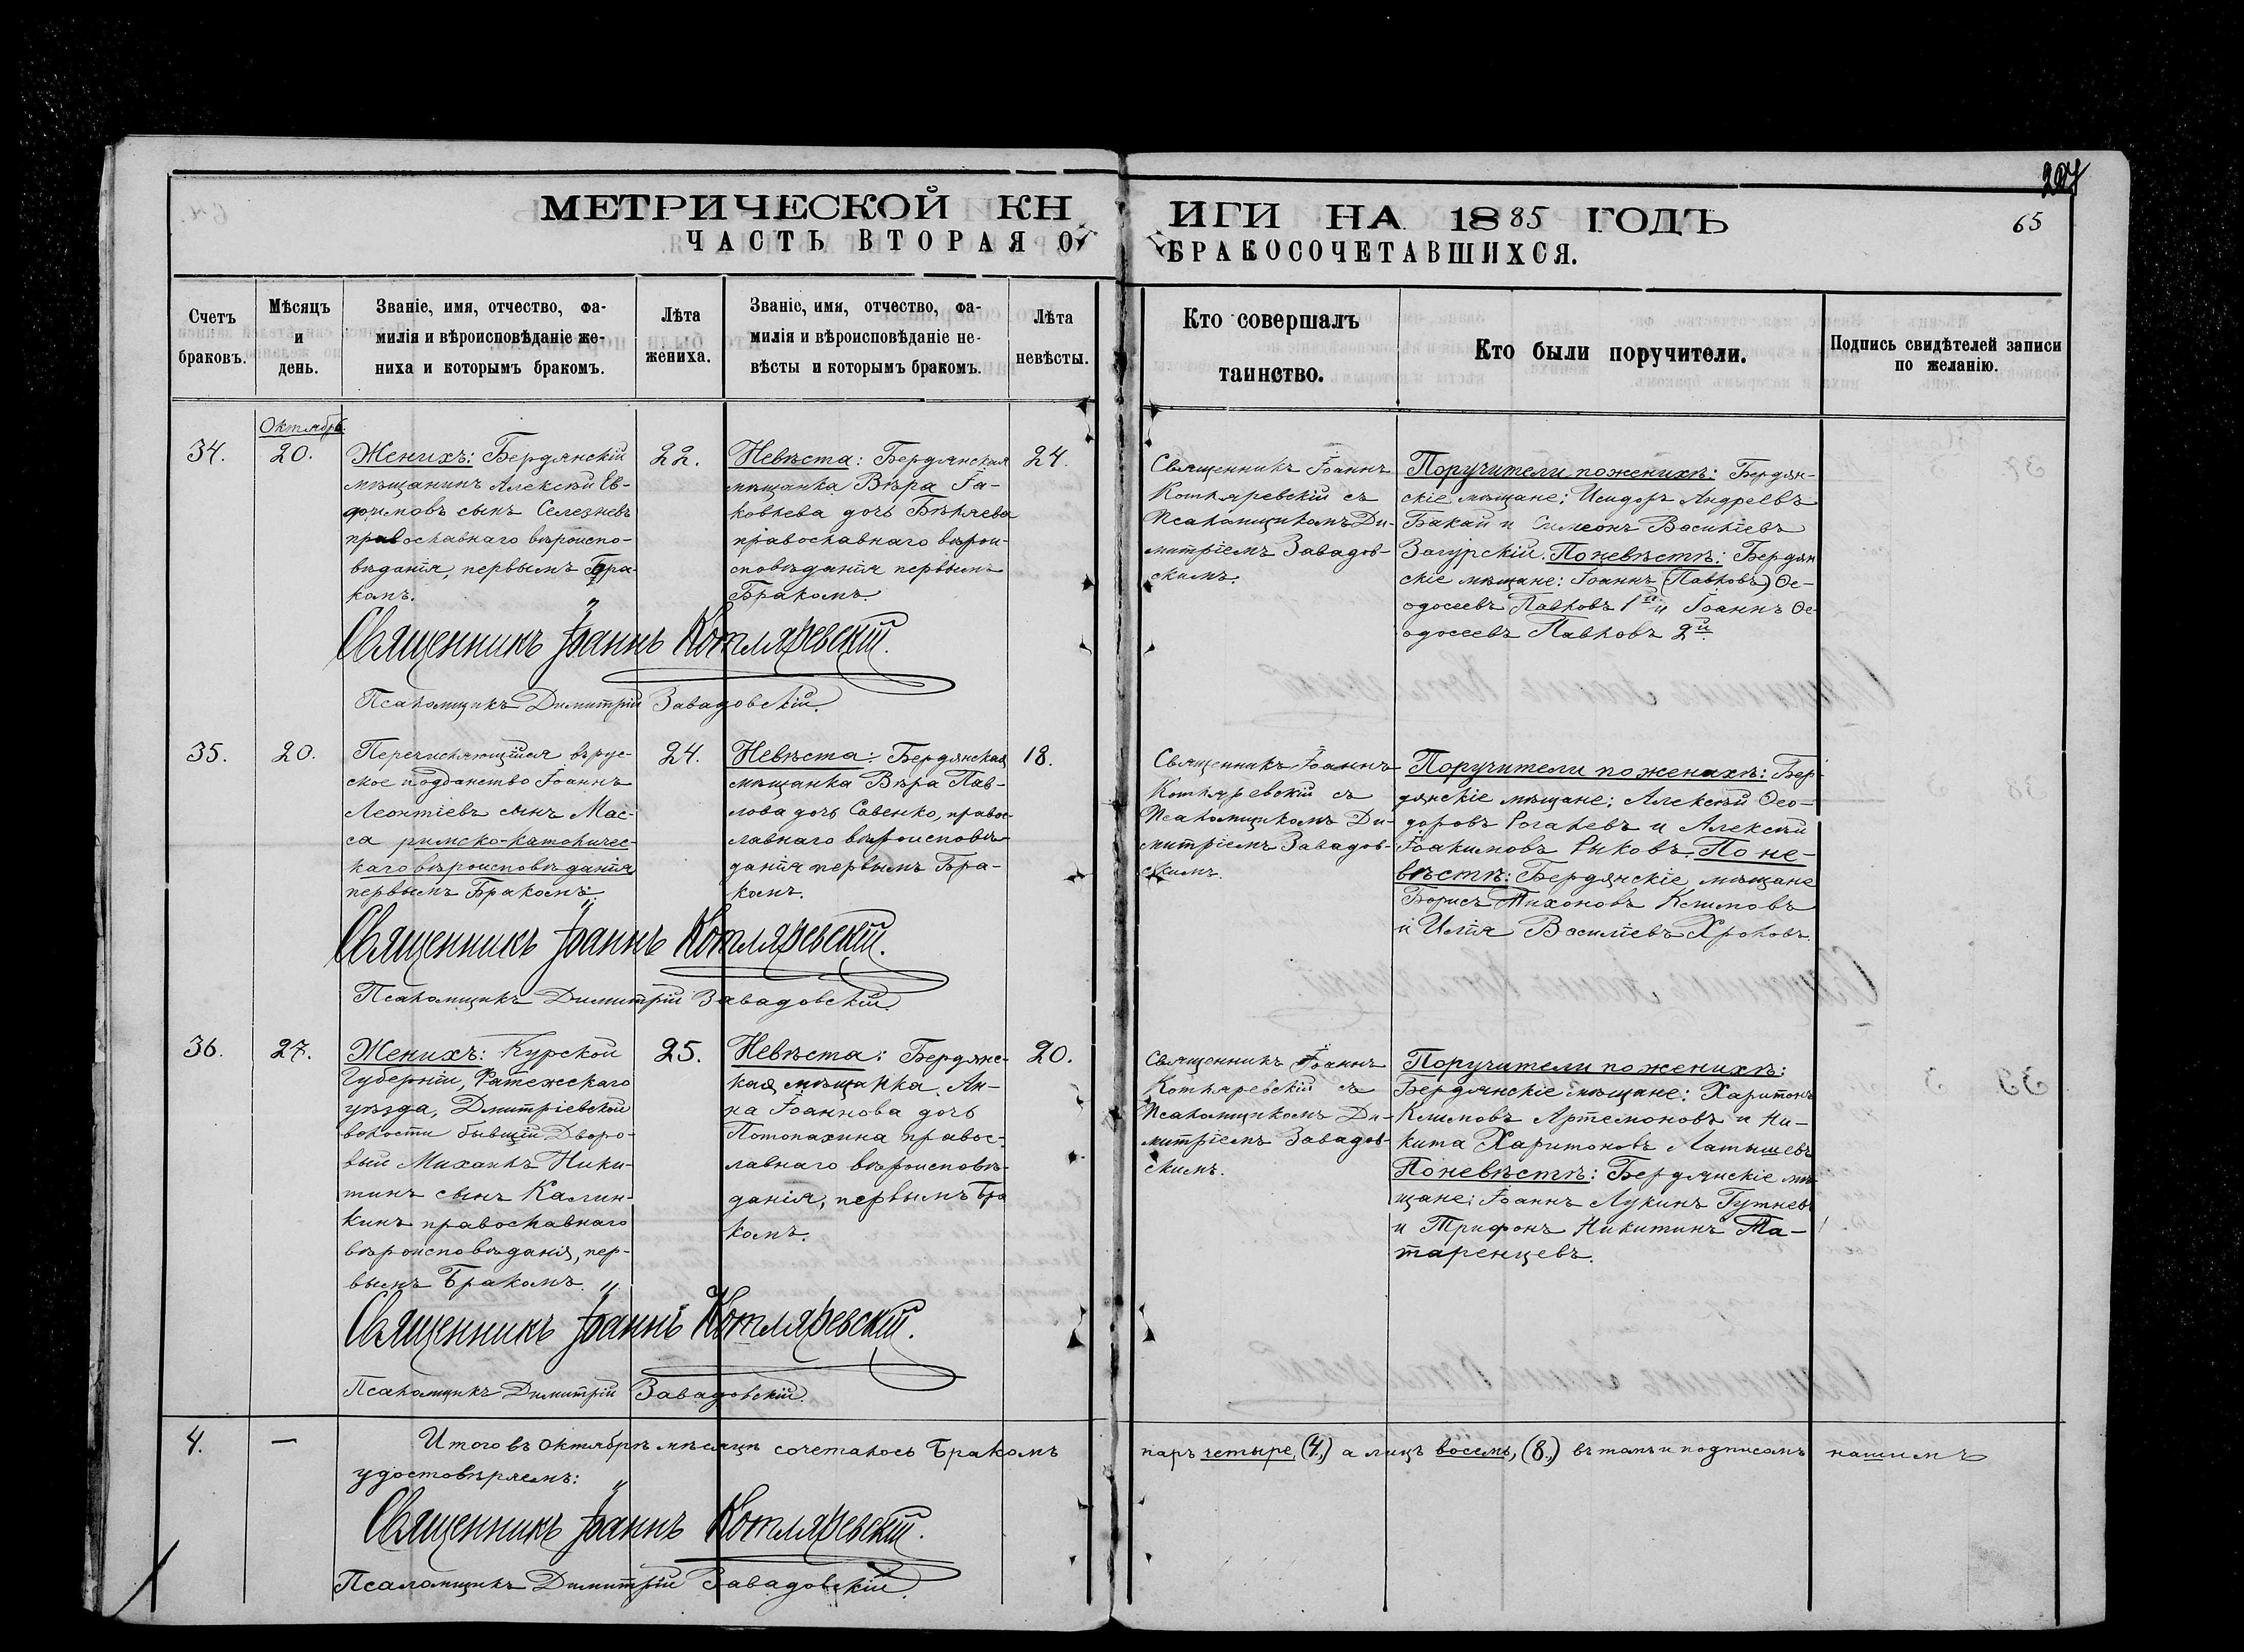 207
МЕТРИЧЕСКОЙ КНИГИ НА 1885 ГОДЪ
65
ЧАСТЬ ВТОРАЯ О БРАКОСОЧЕТАВШИХСЯ.
Счетъ браковъ.
Мѣсяцъ и день.
Званіе, имя, отчество, фа-
милія и вѣроисповѣданіе же-
ниха и которымъ бракомъ.
Лѣта жениха.
Званіе, имя, отчество, фа-
милія и вѣроисповѣданіе не-
вѣсты и которымъ бракомъ.
Лѣта невѣсты.
Кто совершалъ
таинство.
Кто были поручители.
Подпись свидѣтелей записи
по желанію.
34.
Октябрь.
20.
Женихъ: Бердянскій
мѣщанинъ Алексѣй Ев-
фимовъ сынъ Селезневъ
православнаго вѣроиспо-
вѣданія, первымъ Бра-
комъ.
22.
Невѣста: Бердянская
мѣщанка Вѣра Іа-
ковлева дочь Бѣляева
православнаго вѣрои-
сповѣданія первымъ
Бракомъ.
24.
Священникъ Іоаннъ
Котляревскій съ
Псаломщикомъ Ди-
митріемъ Завадов-
скимъ.
Поручители по женихѣ: Бердян-
скіе мѣщане: Исидоръ Андреевъ
Бакай и Симеонъ Василіевъ
Загурскій. По невѣстѣ: Бердян
скіе мѣщане: Іоаннъ (Павловъ) Ѳе-
одосеевъ Павловъ 1й и Іоаннъ Ѳе
одосеевъ Павловъ 2й
Священникъ Іоаннъ Котляревскій.
Псаломщикъ Димитрій Завадовскій.
35.
20.
Перечисляющійся въ рус-
ское подданство Іоаннъ
Леонтіевъ сынъ Мас-
са римско-католичес-
каго вѣроисповѣданія
первымъ Бракомъ.
24.
Невѣста: Бердянская
мѣщанка Вѣра Пав-
лова дочь Савенко, правос-
лавнаго вѣроисповѣ-
данія первымъ Бра-
комъ.
18.
Священникъ Іоаннъ
Котляревскій съ
Псаломщикомъ Ди-
митріемъ Завадов-
скимъ.
Поручители по женихѣ: Бер-
дянскіе мѣщане: Алексѣй Ѳео-
доровъ Рогалевъ и Алексѣй
Іоакимовъ Рыковъ. По не-
вѣстѣ: Бердянскіе мѣщане
Борисъ Тихоновъ Климовъ
и Илія Василіевъ Хроловъ.
Священникъ Іоаннъ Котляревскій.
Псаломщикъ Димитрій Завадовскій.
36.
27.
Женихъ: Курской
Губерніи, Фатежскаго
уѣзда, Дмитріевской
волости бывшій Дворо-
вый Михаилъ Ники-
тинъ сынъ Калин-
кинъ православнаго
вѣроисповѣданія, пер-
вымъ Бракомъ.
25.
Невѣста: Бердянс-
кая мѣщанка Ан-
на Іоаннова дочь
Потопахина правос-
лавнаго вѣроисповѣ-
данія, первымъ Бра
комъ.
20.
Священникъ Іоаннъ
Котляревскій съ
Псаломщикомъ Ди-
митріемъ Завадов-
скимъ.
Поручители по женихѣ:
Бердянскіе мѣщане: Харитонъ
Климовъ Артемоновъ и Ни-
кита Харитоновъ Латышевъ
По невѣстѣ: Бердянскіе мѣ
щане: Іоаннъ Лукинъ Гутневъ
и Трифонъ Никитинъ Та-
таренцевъ.
Священникъ Іоаннъ Котляревскій.
Псаломщикъ Димитрій Завадовскій.
4.
—
Итого въ Октябрѣ мѣсяцѣ сочеталось Бракомъ паръ четыре, (4,) а лицъ восемь, (8,) въ томъ и подписомъ нашимъ
удостовѣряемъ:
Священникъ Іоаннъ Котляревскій.
Псаломщикъ Димитрій Завадовскій.